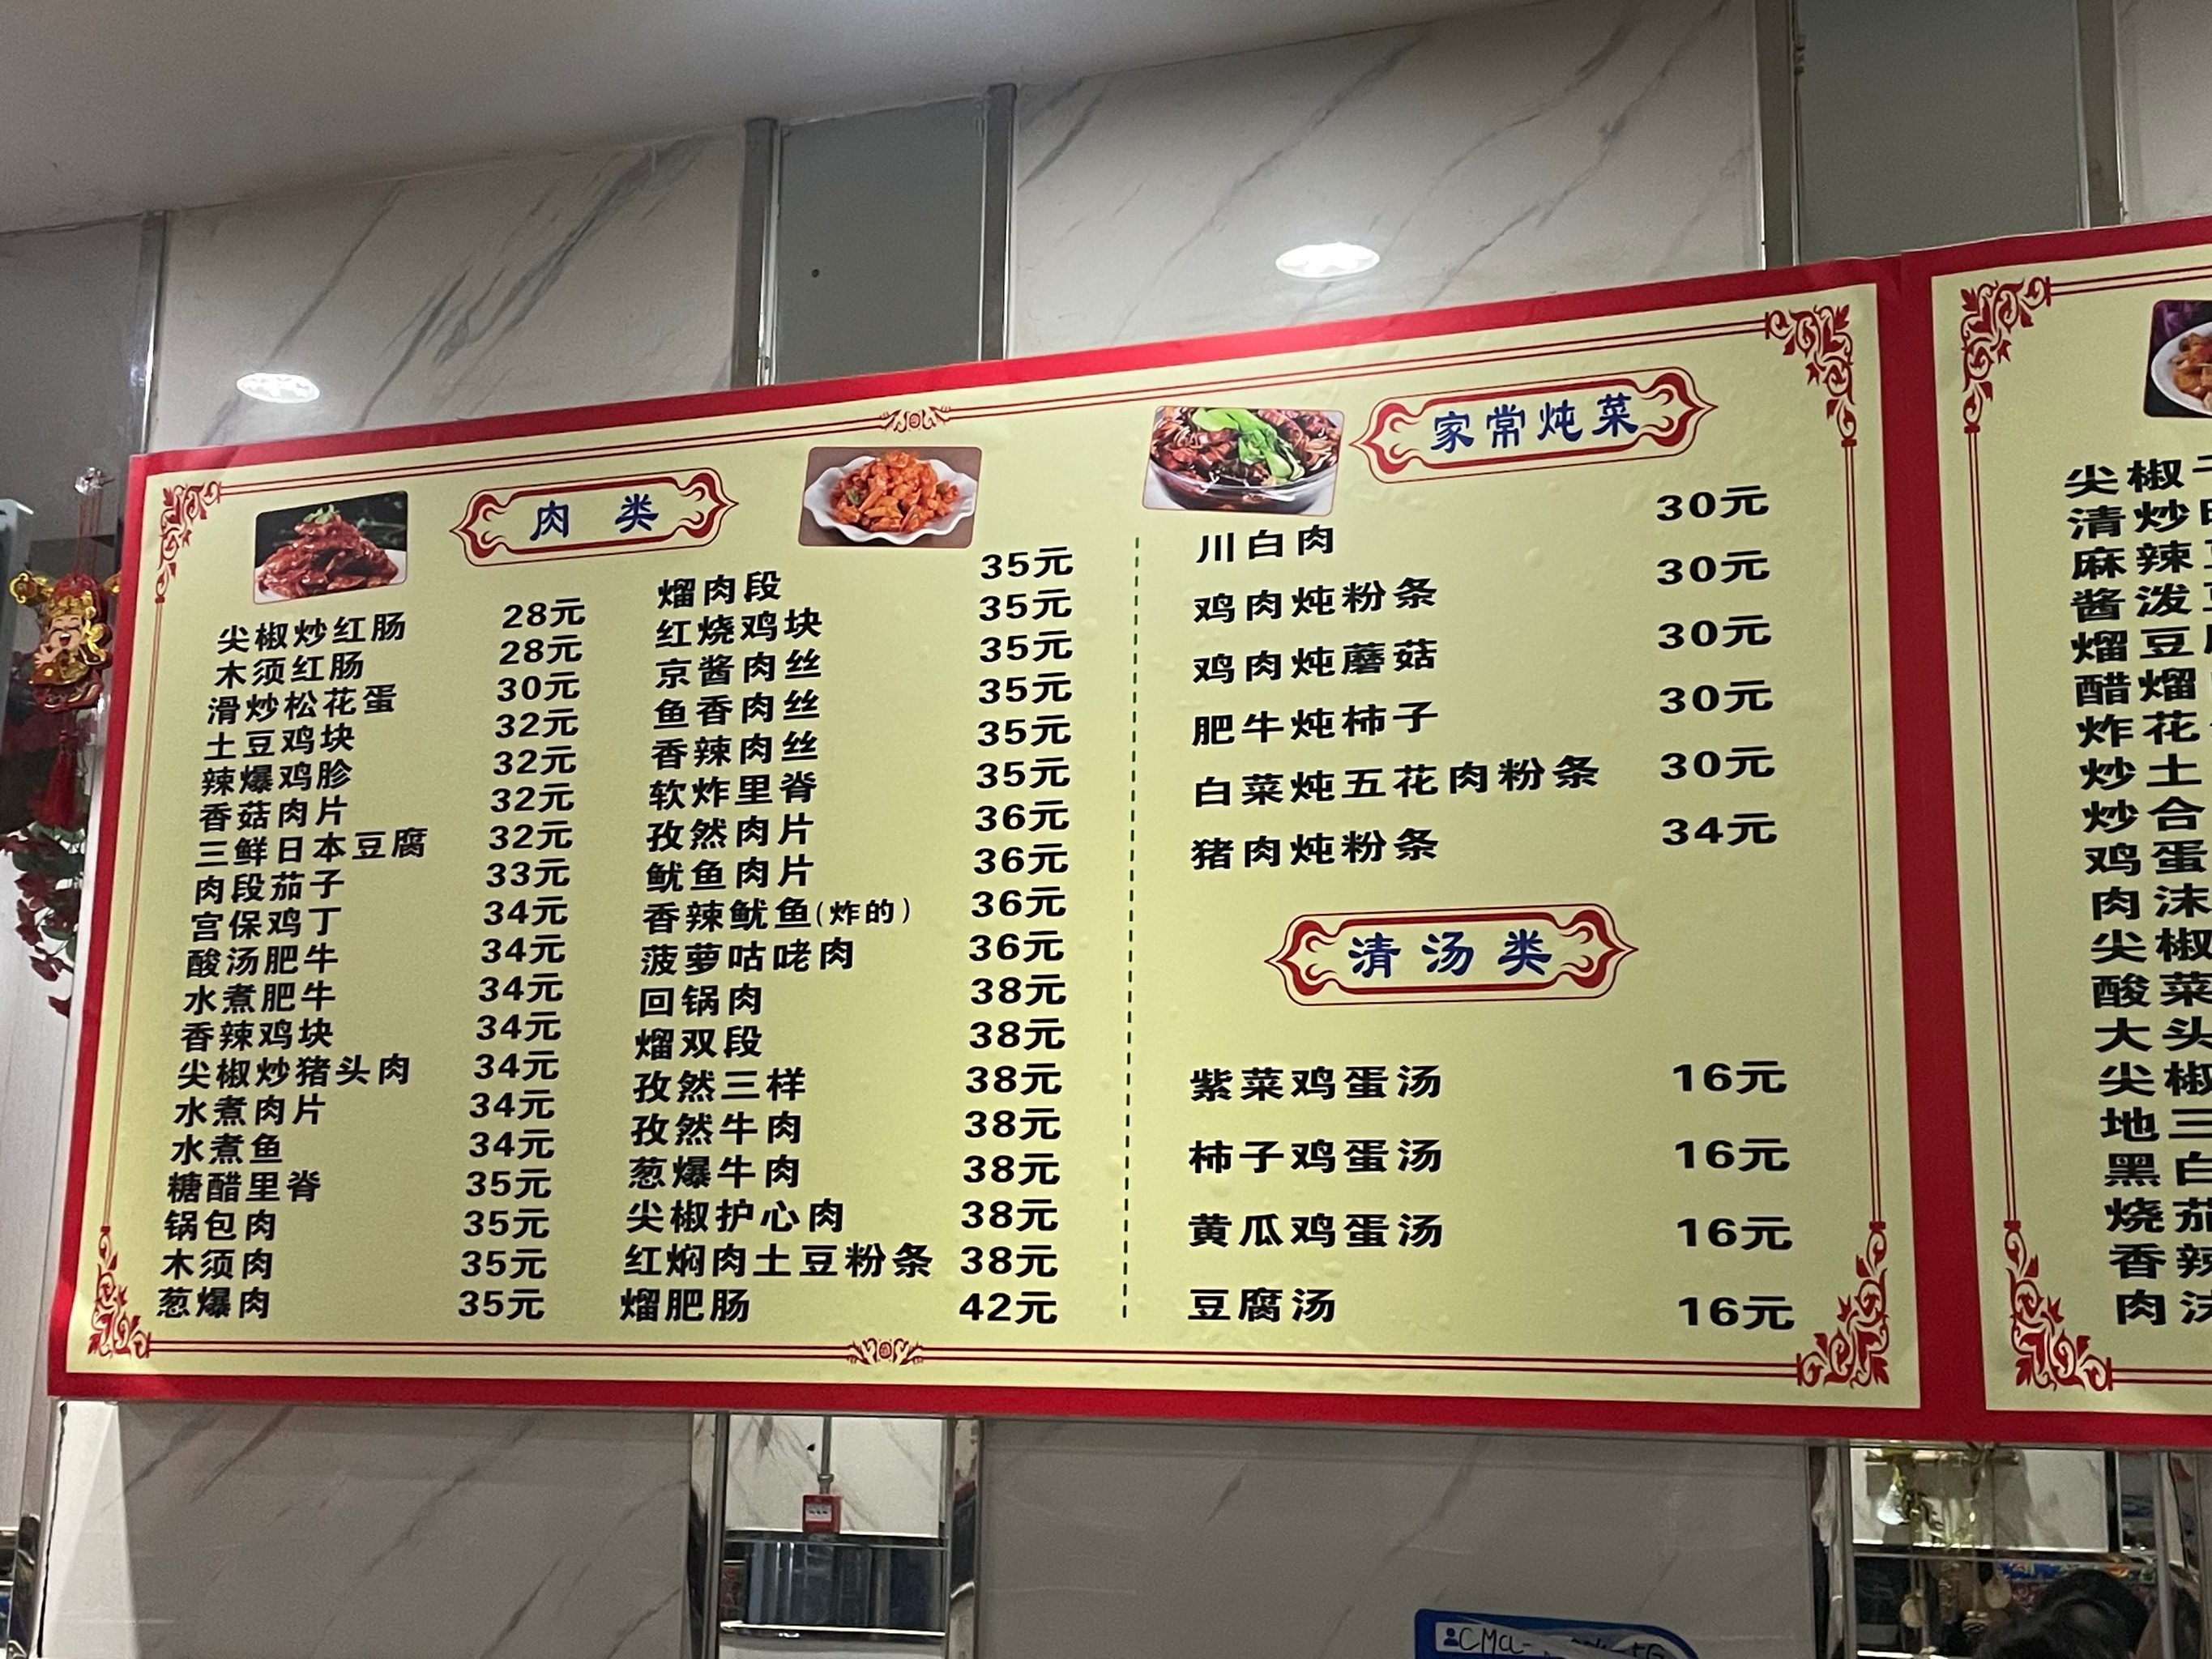 肉类
尖椒炒红肠 28元
木须红肠 28元
滑炒松花蛋 30元
土豆鸡块 32元
辣爆鸡胗 32元
香菇肉片 32元
三鲜日本豆腐 32元
肉段茄子 33元
宫保鸡丁 34元
酸汤肥牛 34元
水煮肥牛 34元
香辣鸡块 34元
尖椒炒猪头肉 34元
水煮肉片 34元
水煮鱼 34元
糖醋里脊 35元
锅包肉 35元
木须肉 35元
葱爆肉 35元
熘肉段 35元
红烧鸡块 35元
京酱肉丝 35元
鱼香肉丝 35元
香辣肉丝 35元
软炸里脊 35元
孜然肉片 36元
鱿鱼肉片 36元
香辣鱿鱼(炸的) 36元
菠萝咕咾肉 36元
回锅肉 38元
熘双段 38元
孜然三样 38元
孜然牛肉 38元
葱爆牛肉 38元
尖椒护心肉 38元
红焖肉土豆粉条 38元
熘肥肠 42元
家常炖菜
川白肉 30元
鸡肉炖粉条 30元
鸡肉炖蘑菇 30元
肥牛炖柿子 30元
白菜炖五花肉粉条 30元
猪肉炖粉条 34元
清汤类
紫菜鸡蛋汤 16元
柿子鸡蛋汤 16元
黄瓜鸡蛋汤 16元
豆腐汤 16元
尖椒
清炒
麻辣
酱泼
熘豆
醋熘
炸花
炒土
炒合
鸡蛋
肉沫
尖椒
酸菜
大头
尖椒
地三
黑白
烧茄
香辣
肉